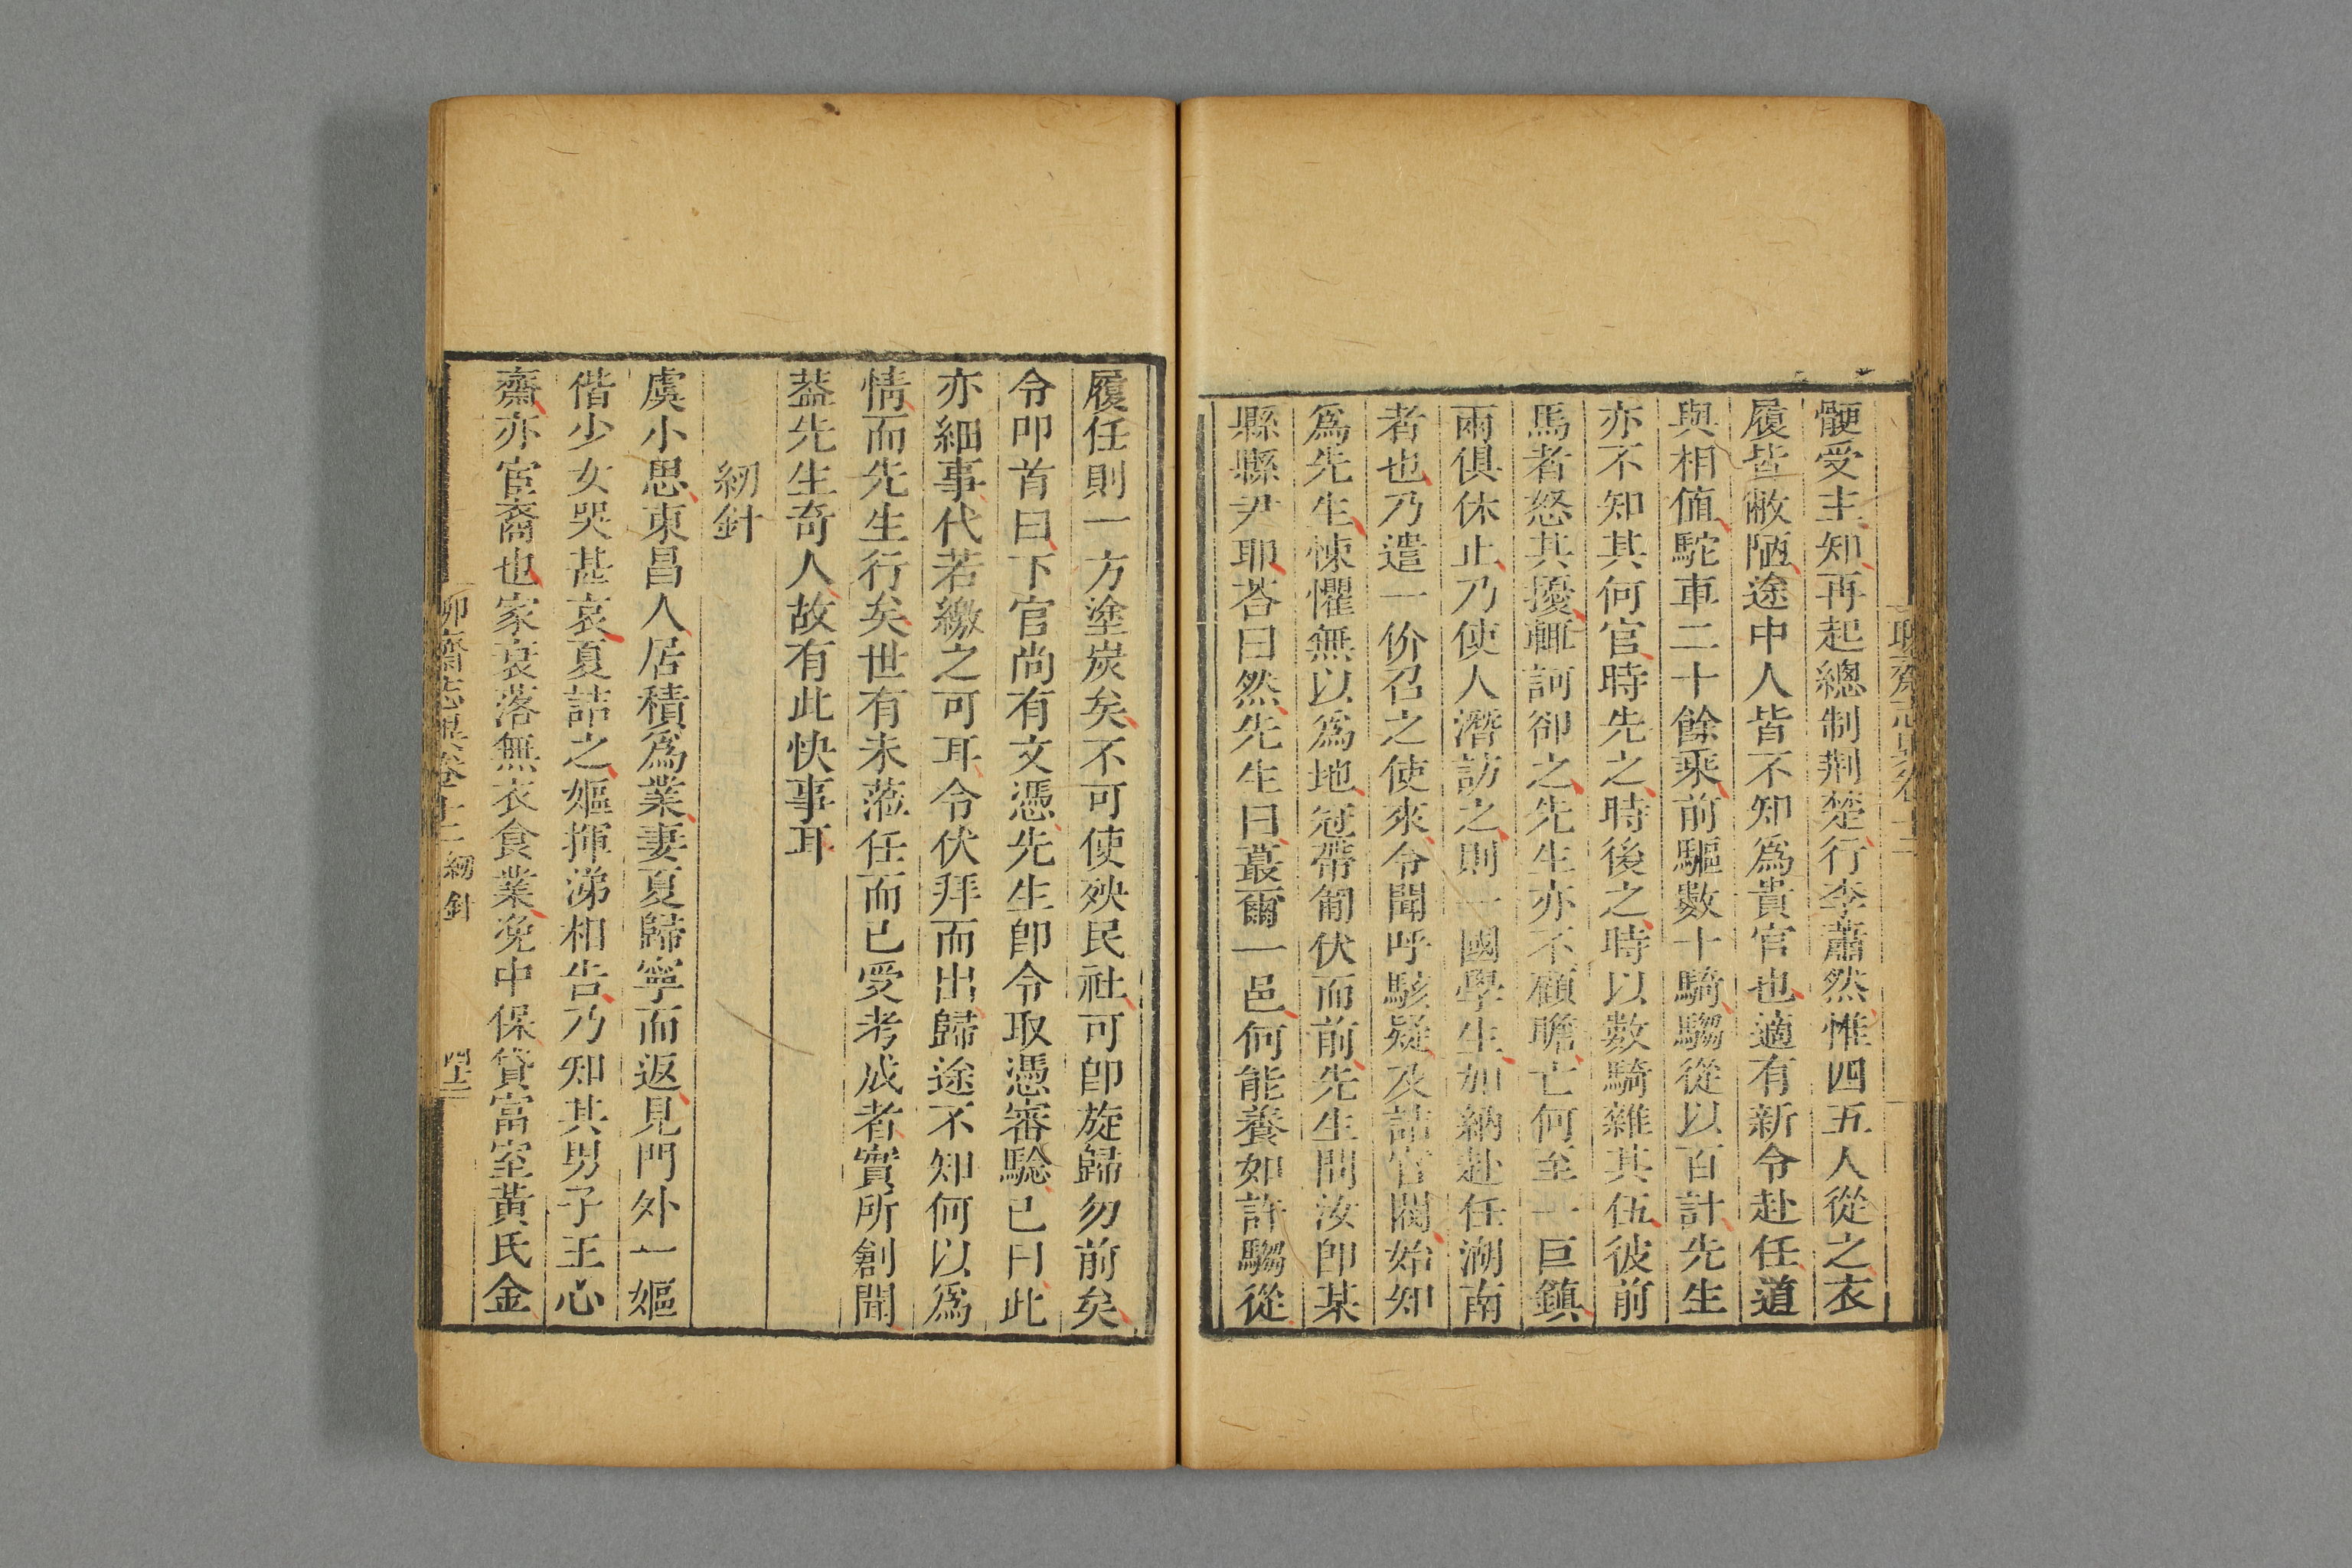 聊齋志異卷十二
骾受主知再起總制荆楚行李蕭然惟四五人從之衣
履皆敝陋途中人皆不知爲貴官也適有新令赴任道
與相値駝車二十餘乘前驅數十騎騶從以百計先生
亦不知其何官時先之時後之時以數騎雜其伍彼前
馬者怒其擾輒訶卻之先生亦不顧瞻亡何至一巨鎮
兩俱休止乃使人潛訪之則一國學生加納赴任湖南
者也乃遣一价召之使來令聞呼駭疑及詰官閥始知
爲先生悚懼無以爲地冠帶匍伏而前先生問汝卽某
縣縣尹耶荅曰然先生曰蕞爾一邑何能養如許騶從
履任則一方塗炭矣不可使殃民社可卽旋歸勿前矣
令叩首曰下官尚有文憑先生卽令取憑審驗已曰此
亦細事代若繳之可耳令伏拜而出歸途不知何以爲
情而先生行矣世有未蒞任而已受考成者實所創聞
葢先生奇人故有此快事耳
紉針
虞小思東昌人居積爲業妻夏歸寧而返見門外一嫗
偕少女哭甚哀夏詰之嫗揮涕相告乃知其男子王心
齋亦宦裔也家衰落無衣食業浼中保貸富室黃氏金
聊齋志異卷十二 紉針 四十三